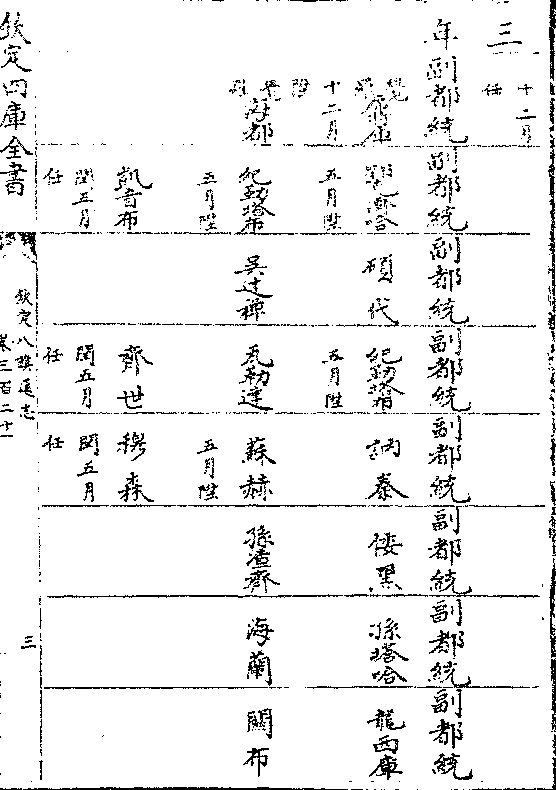 三
十二月
任
年副都統副都統副都統副都統副都統副都統副都統副都統
覺羅
十二月
陞
覺羅
五月陞
紀勒塔布
五月陞
凱音布
閏五月
任
碩代
吳达禪
紀勒塔布
五月陞
瓦勒達
齊世
閏五月
任
訥秦
蘇赫
五月陞
穆森
閏五月
任
倭黑
孫渣齊
孫塔哈
海蘭
龍西庫
關布
欽定四庫全書
欽定八旗通志
卷三百二十一
三